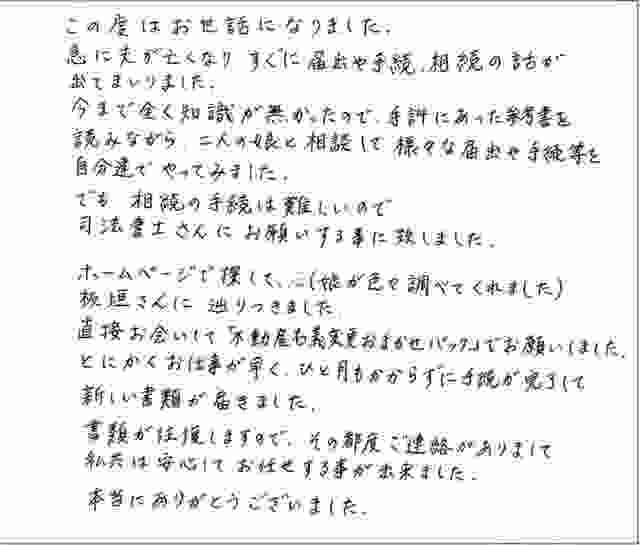 この度はお世話になりました.
急に夫が亡くなり すぐに届出や手続、相続の話が
出てまいりました.
今まで全く知識が無かったので、手許にあった参考書を
読みながら、二人の娘と相談して様々な届出や手続等を
自分達でやってみました.
でも 相続の手続は難しいので
司法書士さんにお願いする事に致しました.
ホームページで探して、(娘が色々調べてくれました)
板垣さんに 辿りつきました
直接お会いして「不動産名義変更おまかせパック」でお願いしました.
とにかくお仕事が早く、ひと月もかからずに手続が完了して
新しい書類が届きました.
書類が往復しますので、その都度ご連絡がありまして
私共は安心してお任せする事が出来ました.
本当にありがとうございました.